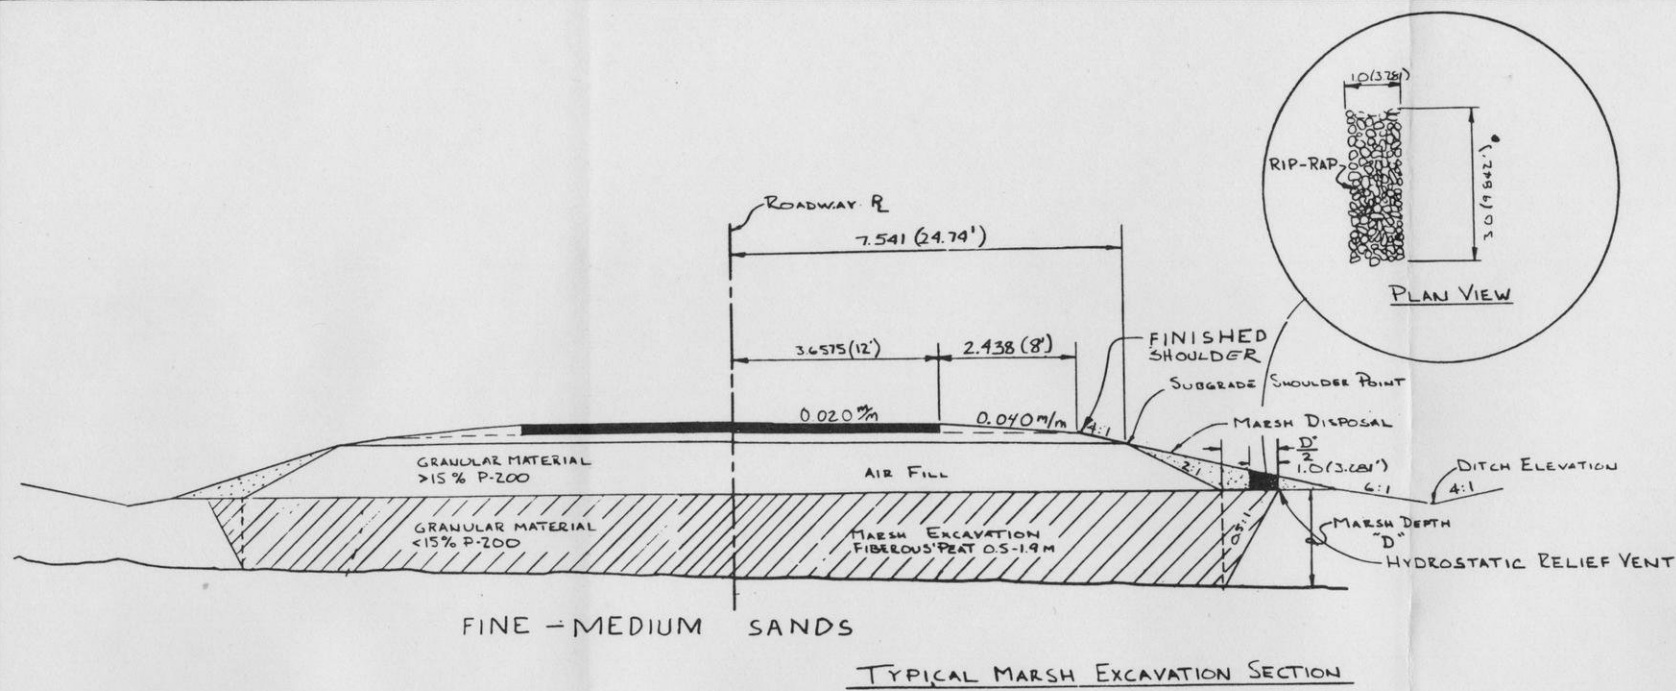 1.0 (3.281)
RIP-RAP
3.0 (9.842')
PLAN VIEW
ROADWAY ⅊
7.541 (24.74')
3.6575 (12')
2.438 (8')
FINISHED
SHOULDER
SUBGRADE SHOULDER POINT
0.020 m/m
0.040 m/m
4:1
MARSH DISPOSAL
D"
2
1.0 (3.281')
DITCH ELEVATION
GRANULAR MATERIAL
>15% P-200
AIR FILL
2:1
6:1
4:1
GRANULAR MATERIAL
<15% P-200
MARSH EXCAVATION
FIBEROUS PEAT 0.5-1.9 M
0.5:1
MARSH DEPTH
"D"
HYDROSTATIC RELIEF VENT
FINE - MEDIUM SANDS
TYPICAL MARSH EXCAVATION SECTION